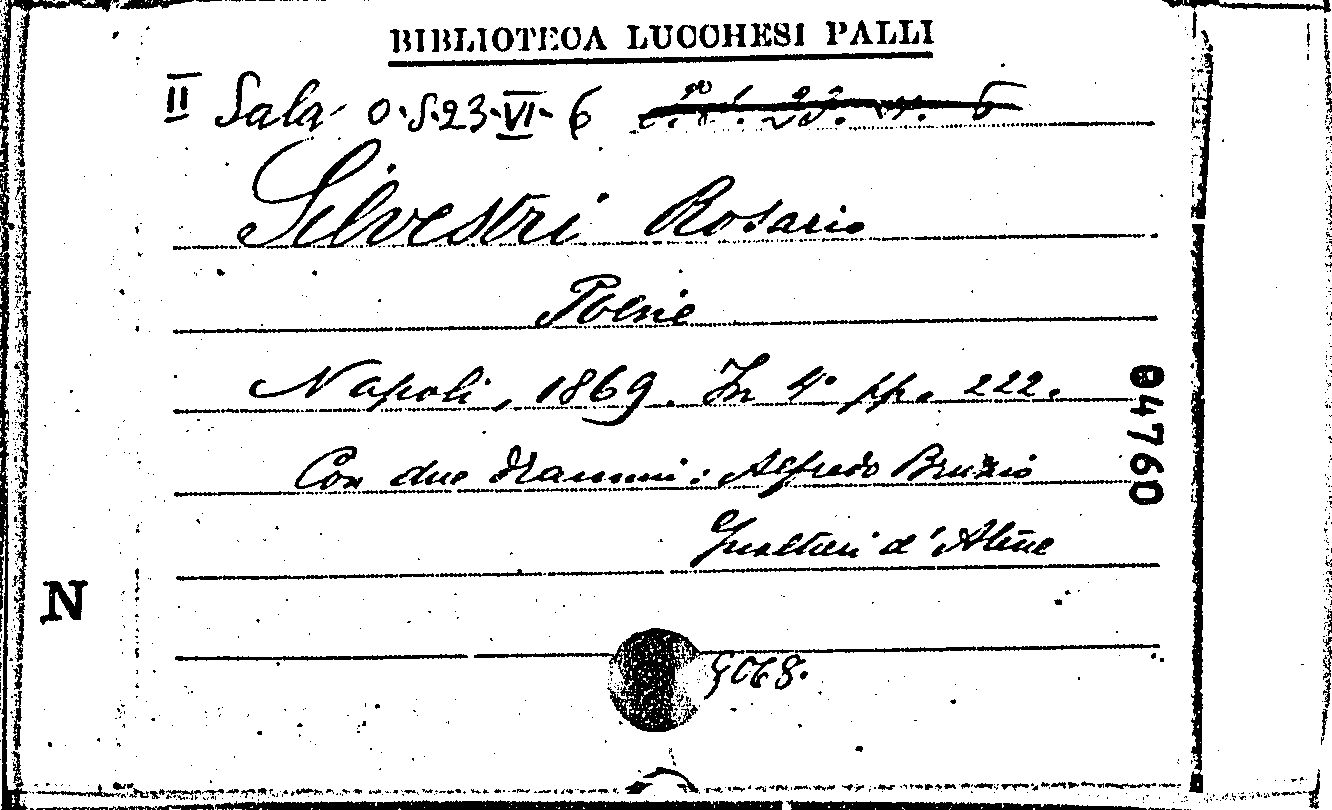 BIBLIOTECA LUCCHESI PALLI
II Sala O.S.23.VI.6
Silvestri Rosario
Poesie
Napoli, 1869. In 4° pp. 222.
Con due drammi: Alfredo Bruzio
Gualtieri d'Atene
04760
N
9068.